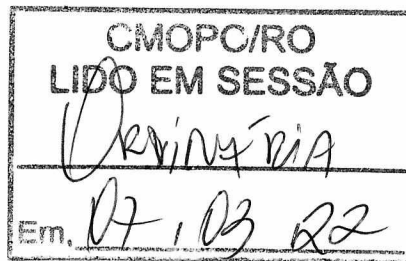 CMOPO/RO
LIDO EM SESSÃO
ORDINÁRIA
Em, 07, 03 22